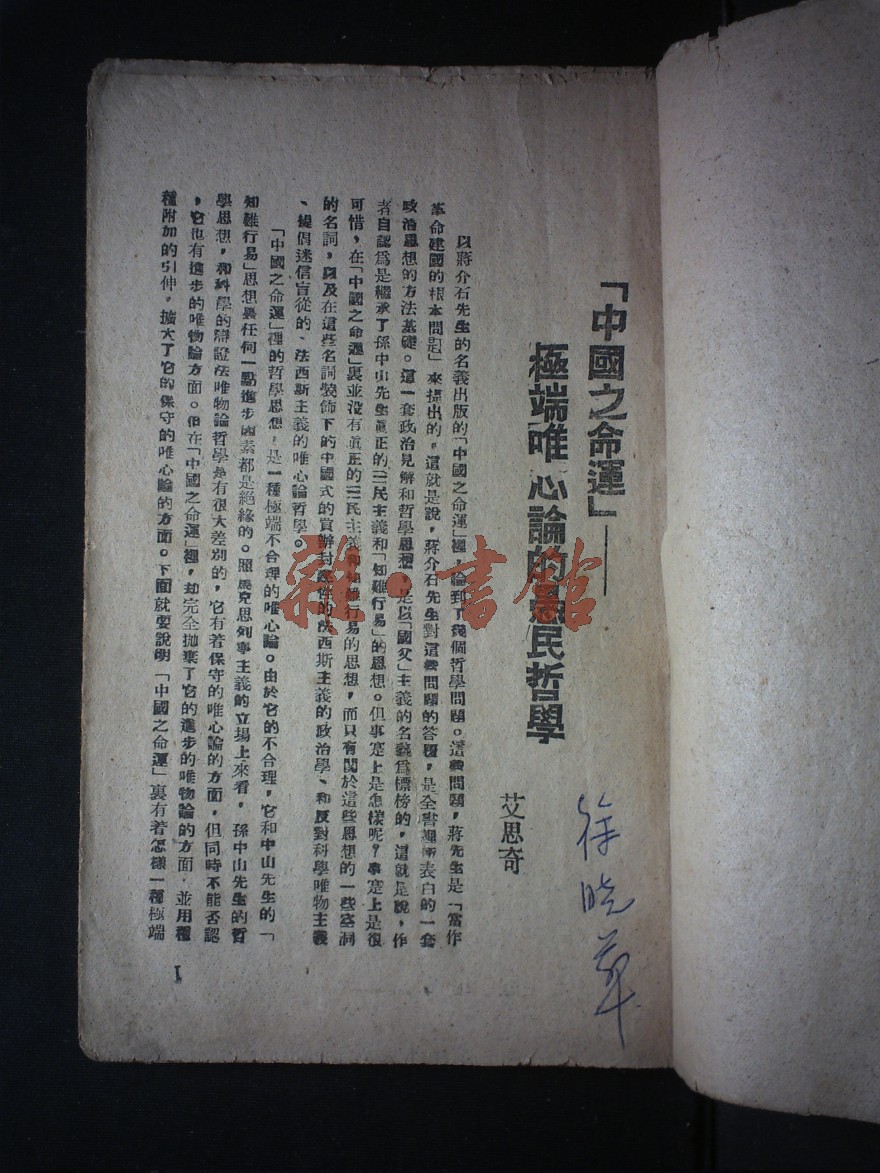 「中國之命運」——
極端唯心論的愚民哲學
艾思奇
以蔣介石先生的名義出版的「中國之命運」裡，論到了幾個哲學問題。這些問題，蔣先生是「當作
革命建國的根本問題」來提出的，這就是說，蔣介石先生對這些問題的答覆，是全書裡所表白的一套
政治思想的方法基礎。這一套政治見解和哲學思想，是以「國父」主義的名義爲標榜的，這就是說，作
者自認爲是繼承了孫中山先生眞正的三民主義和「知難行易」的思想。但事實上是怎樣呢？事實上是很
可惜，在「中國之命運」裏並没有眞正的三民主義和知難行易的思想，而只有關於這些思想的一些空洞
的名詞，以及在這些名詞裝飾下的中國式的買辦封建性的法西斯主義的政治學、和反對科學唯物主義
、提倡迷信盲從的、法西斯主義的唯心論哲學。
「中國之命運」裡的哲學思想，是一種極端不合理的唯心論。由於它的不合理，它和中山先生的「
知難行易」思想裏任何一點進步因素都是絕緣的。照馬克思列寧主義的立場上來看，孫中山先生的哲
學思想，和科學的辯證法唯物論哲學是有很大差別的，它有着保守的唯心論的方面，但同時不能否認
，它也有進步的唯物論方面。但在「中國之命運」裡，却完全拋棄了它的進步的唯物論的方面，並用種
種附加的引伸，擴大了它的保守的唯心論的方面。下面就要說明「中國之命運」裏有着怎樣一種極端
1
徐晓
雜·書館